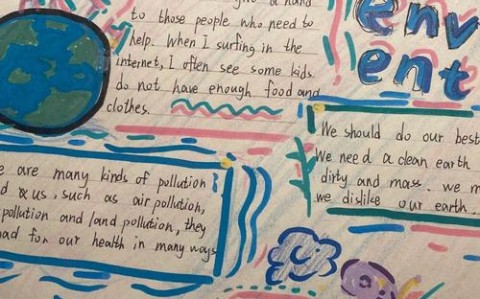 a hand
to those people who need to
help. When I surfing in the
internets, I often see some kids
do not have enough food and
clothes.
env
ent
We should do our best
We need a clean earth
dirty and mass. we m
we dislike our earth.
e are many kinds of pollution
d & us, such as air pollution,
pollution and land pollution, they
ad for our health in many ways